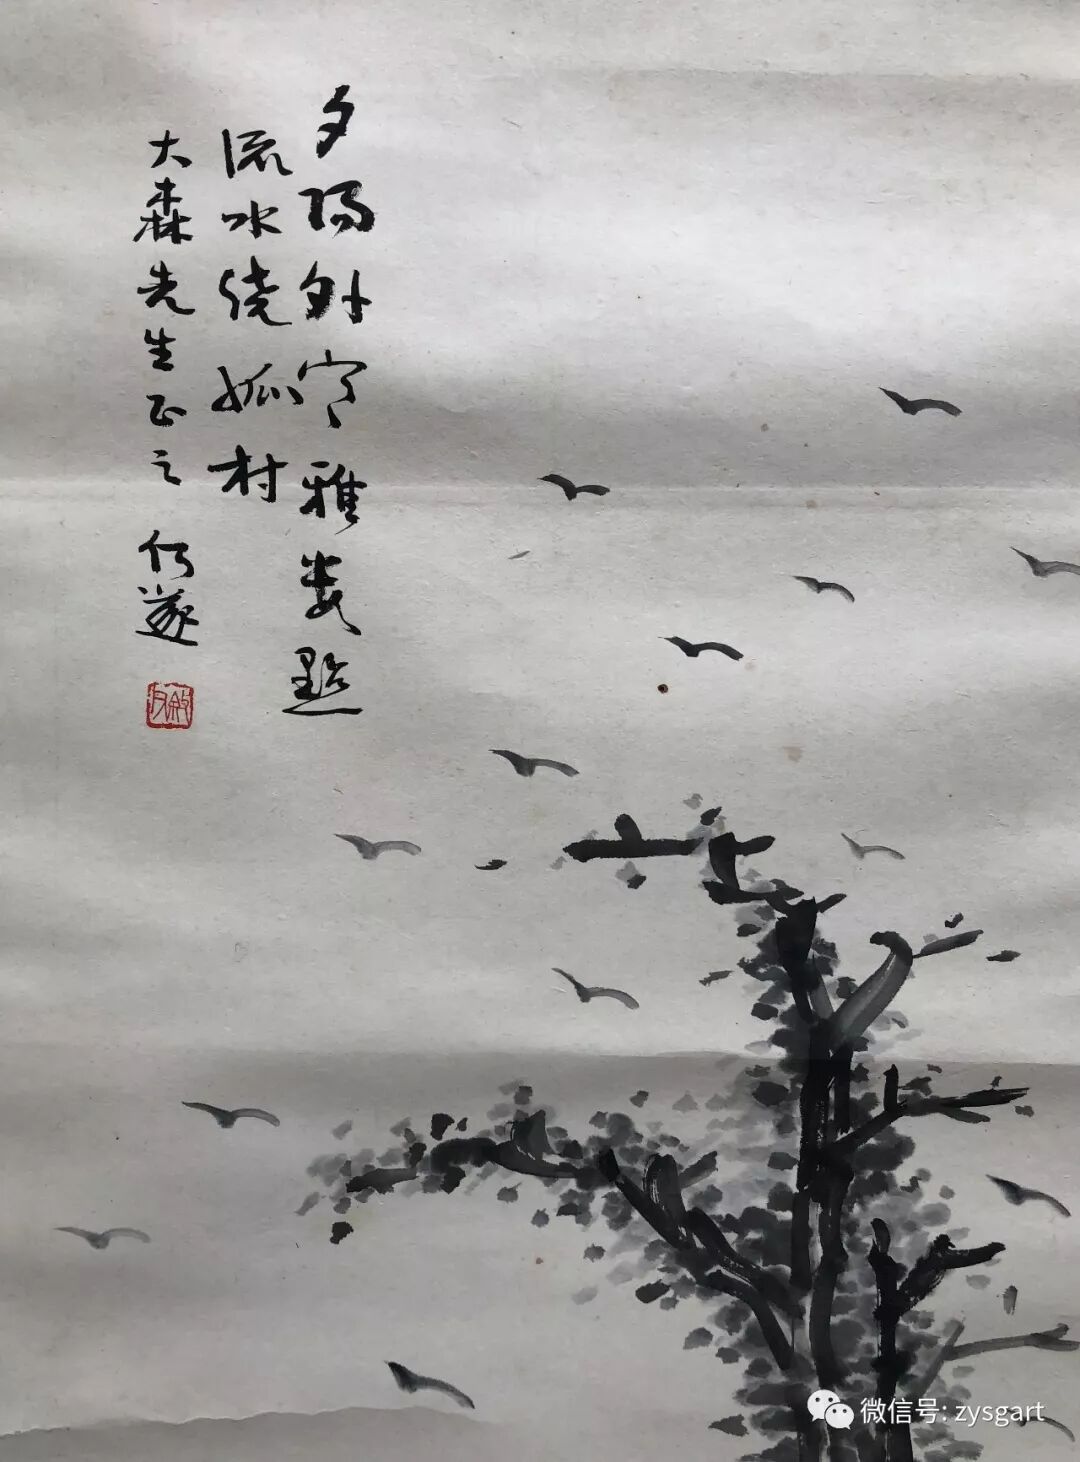 夕陽外寒雅数點
流水绕孤村
大森先生正之 何遂
叙父
微信号: zysgart